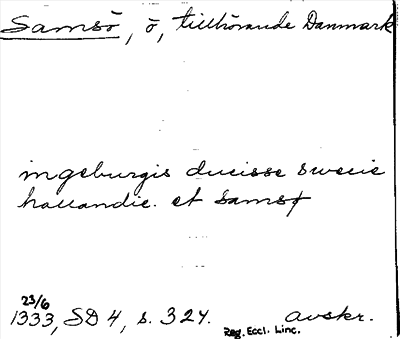 Samsö, ö, tillhörande Danmark
ingeburgis ducisse swecie
hallandie. et Samsø
23/6
1333, SD 4, s. 324. avskr.
Reg. Eccl. Linc.